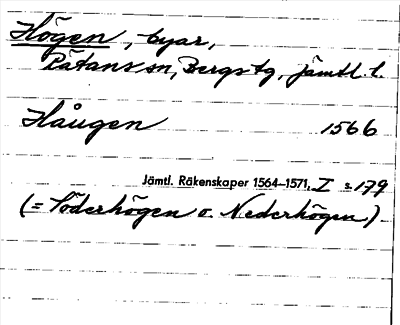 Högen, byar,
Rätans sn, Bergs tg, Jämtl. l.
Haugen 1566
Jämtl. Räkenskaper 1564–1571, I s. 179
(= Söderhögen o. Nederhögen)